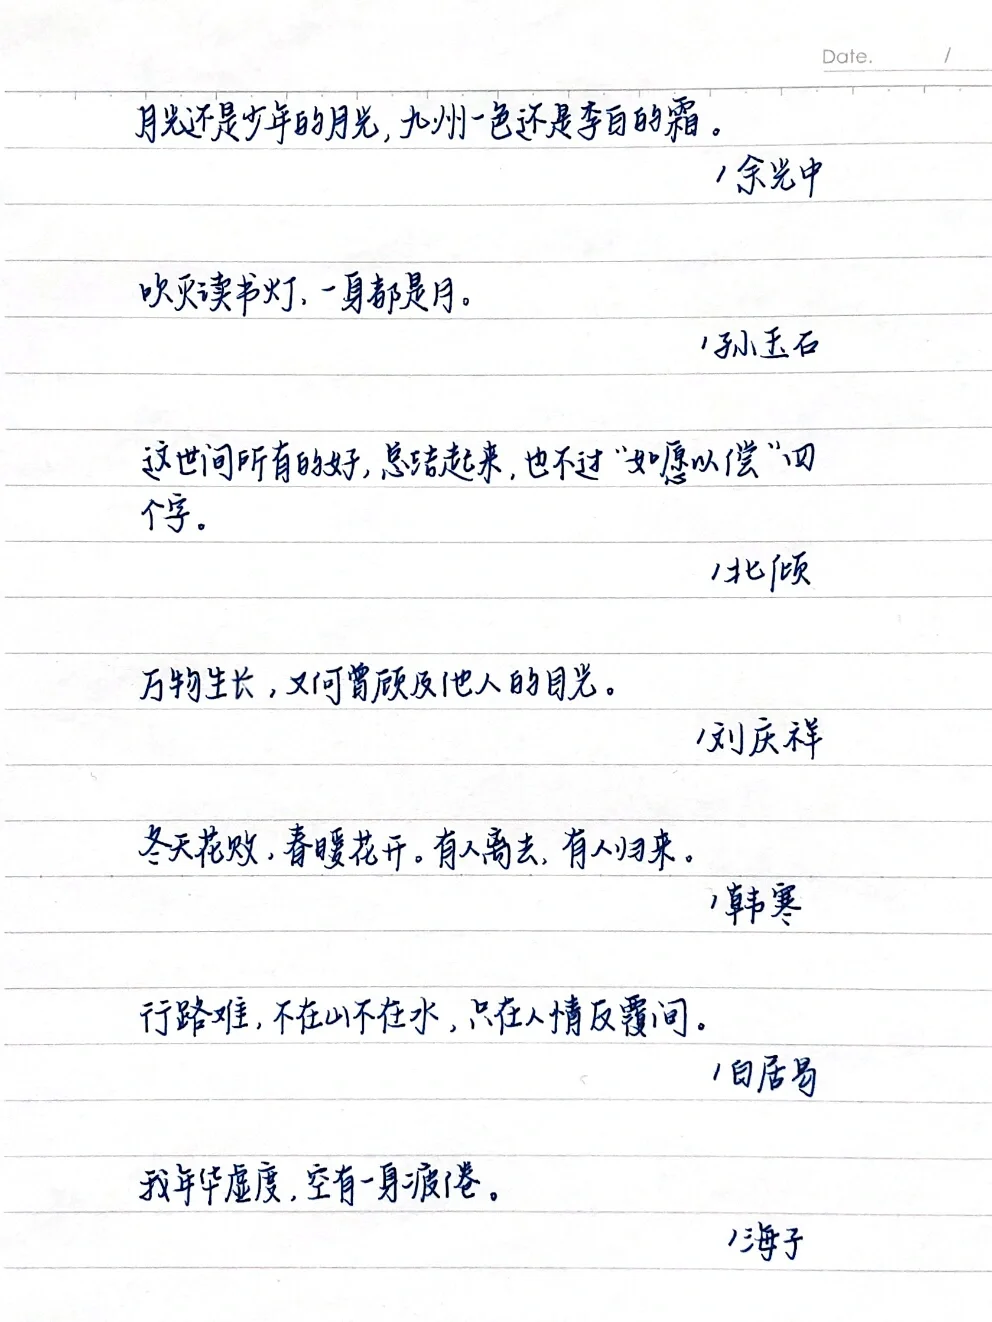 Date. /
月光还是少年的月光,九州一色还是李白的霜。
/余光中
吹灭读书灯,一身都是月。
/孙玉石
这世间所有的好,总结起来,也不过“如愿以偿”四
个字。
/北倾
万物生长,又何曾顾及他人的目光。
/刘庆祥
冬天花败,春暖花开。有人离去,有人归来。
/韩寒
行路难,不在山不在水,只在人情反覆间。
/白居易
我年华虚度,空有一身疲倦。
/海子